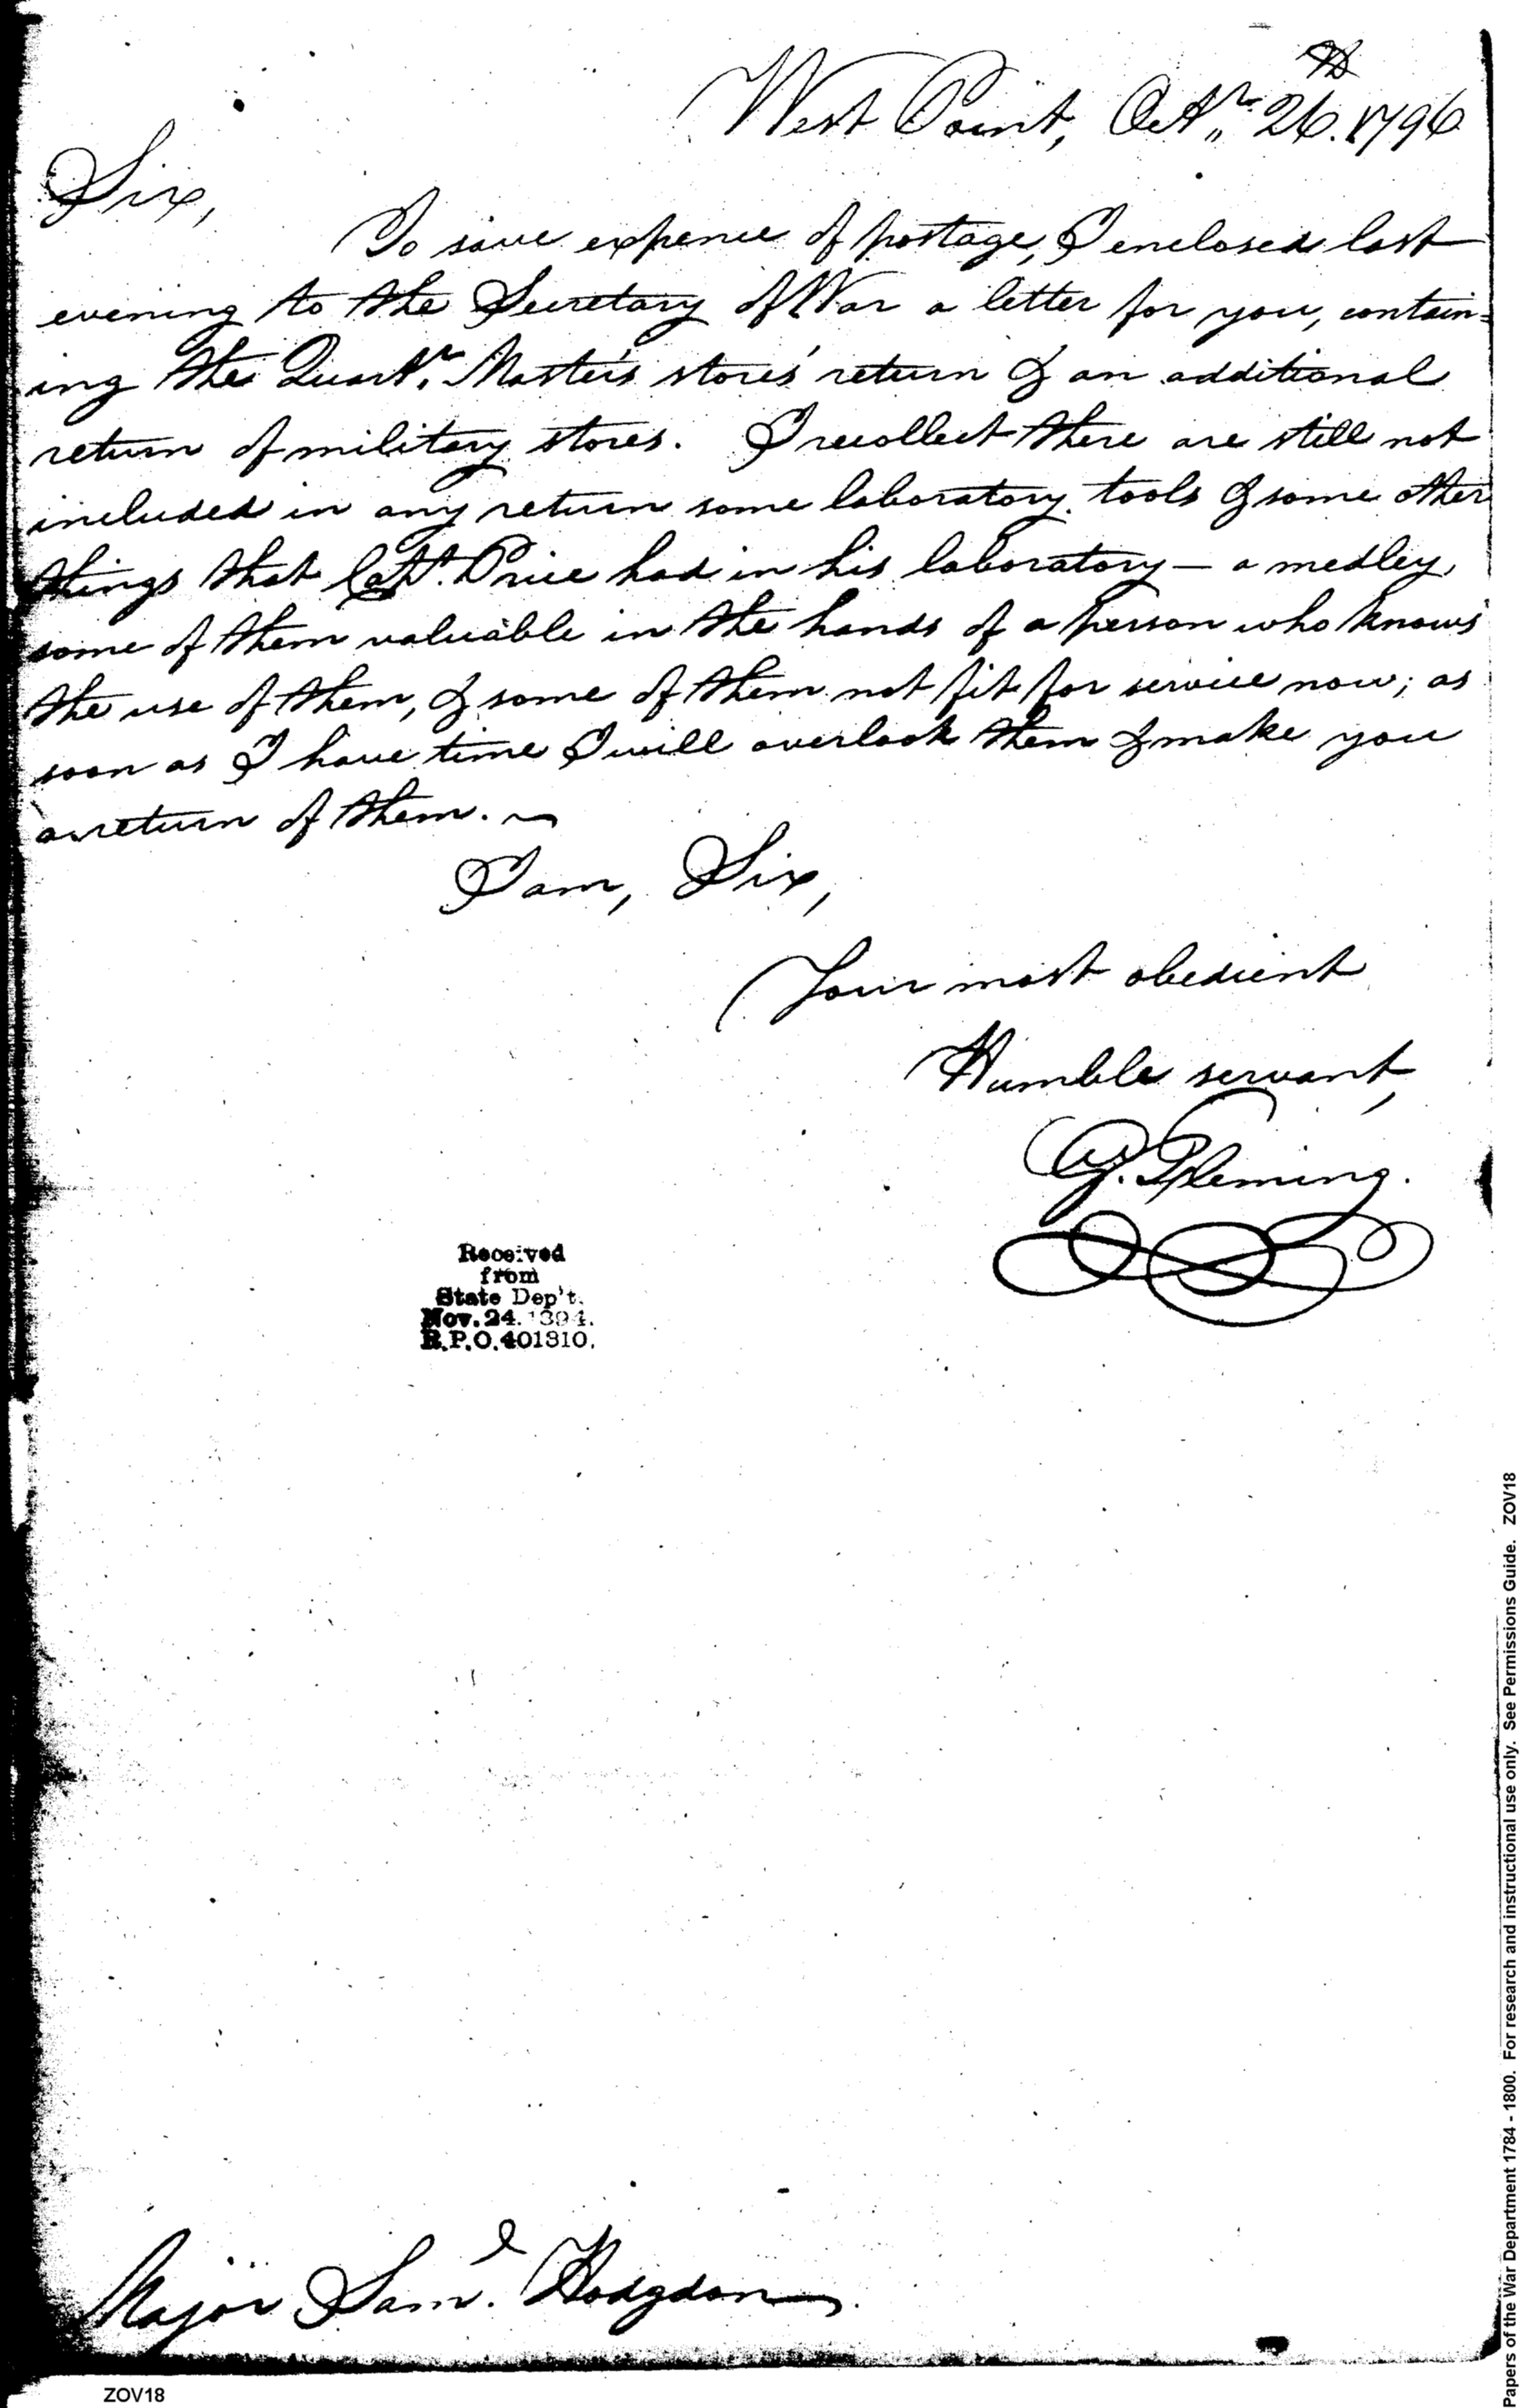 West Point, Octr. 26th. 1796
Sir,
To save expence of postage, I enclosed last
evening to the Secretary of War a letter for you, contain=
ing the Quartr. Master's stores' return & an additional
return of military stores. I recollect there are still not
included in any return some laboratory tools & some other
things that Capt. Price had in his laboratory — a medley,
some of them valuable in the hands of a person who knows
the use of them, & some of them not fit for service now; as
soon as I have time I will overlook them & make you
a return of them. ~
I am, Sir,
Your most obedient
Humble servant,
G. Fleming.
Received
from
State Dep't.
Nov. 24. 1894.
R.P.O. 401310.
Major Saml. Hodgdon
ZOV18
Papers of the War Department 1784 - 1800. For research and instructional use only. See Permissions Guide. ZOV18